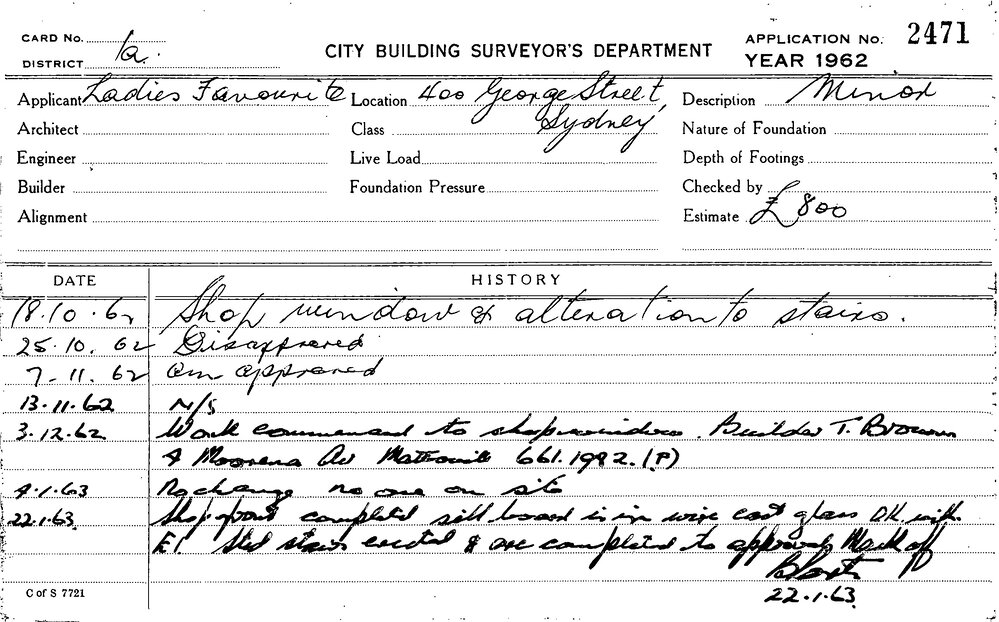 CARD No.
DISTRICT 1a.
CITY BUILDING SURVEYOR'S DEPARTMENT
APPLICATION No. 2471
YEAR 1962
Applicant Ladies Favourite Location 400 George Street, Description Minor
Architect Class Sydney Nature of Foundation
Engineer Live Load Depth of Footings
Builder Foundation Pressure Checked by
Alignment Estimate £800
DATE HISTORY
18.10.62 Shop window & alteration to stairs.
25.10.62 Disapproved
7-11.62 approved
13.11.62 N/S
3.12.62 Work commenced to shopwindow. Builder T. Brown
4 Av 661.1982. (P)
4.1.63 No change no one on site
22.1.63 Shop front completed sill board is in wire cast glass O.K. with
E.I. Steel stairs erected & are completed to approval Mark off
22.1.63
C of S 7721